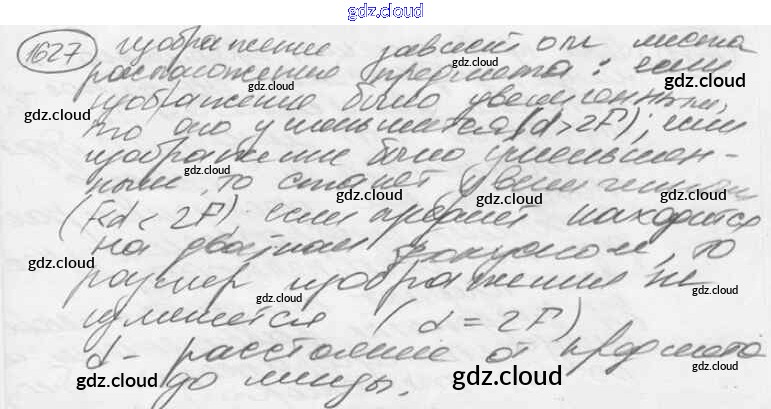 gdz.cloud
1627 изображение зависит от места
gdz.cloud
расположения предмета: если
gdz.cloud
изображение было увеличенным,
gdz.cloud
то оно уменьшится (d>2F); если
изображение было уменьшен-
gdz.cloud
ным, то станет увеличенным
gdz.cloud gdz.cloud gdz.cloud
(F<d<2F) если предмет находится
на двойном фокусном, то
gdz.cloud
размер изображения не
gdz.cloud gdz.cloud
изменяется (d=2F)
d - расстояние от предмета
gdz.cloud gdz.cloud gdz.cloud
до линзы.